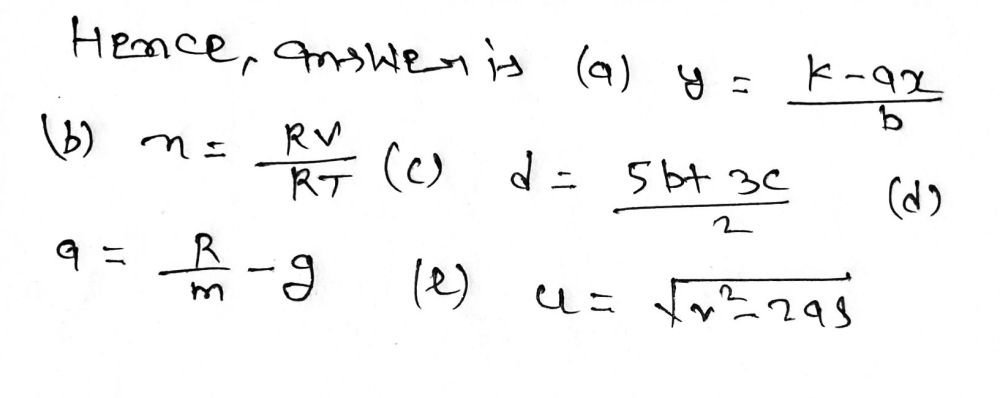 Hence, answer is (a) y = \frac{k-ax}{b}
(b) n = \frac{RV}{RT} (c) d = \frac{5b+3c}{2} (d)
a = \frac{R}{m} - g (e) u = \sqrt{v^2-2as}